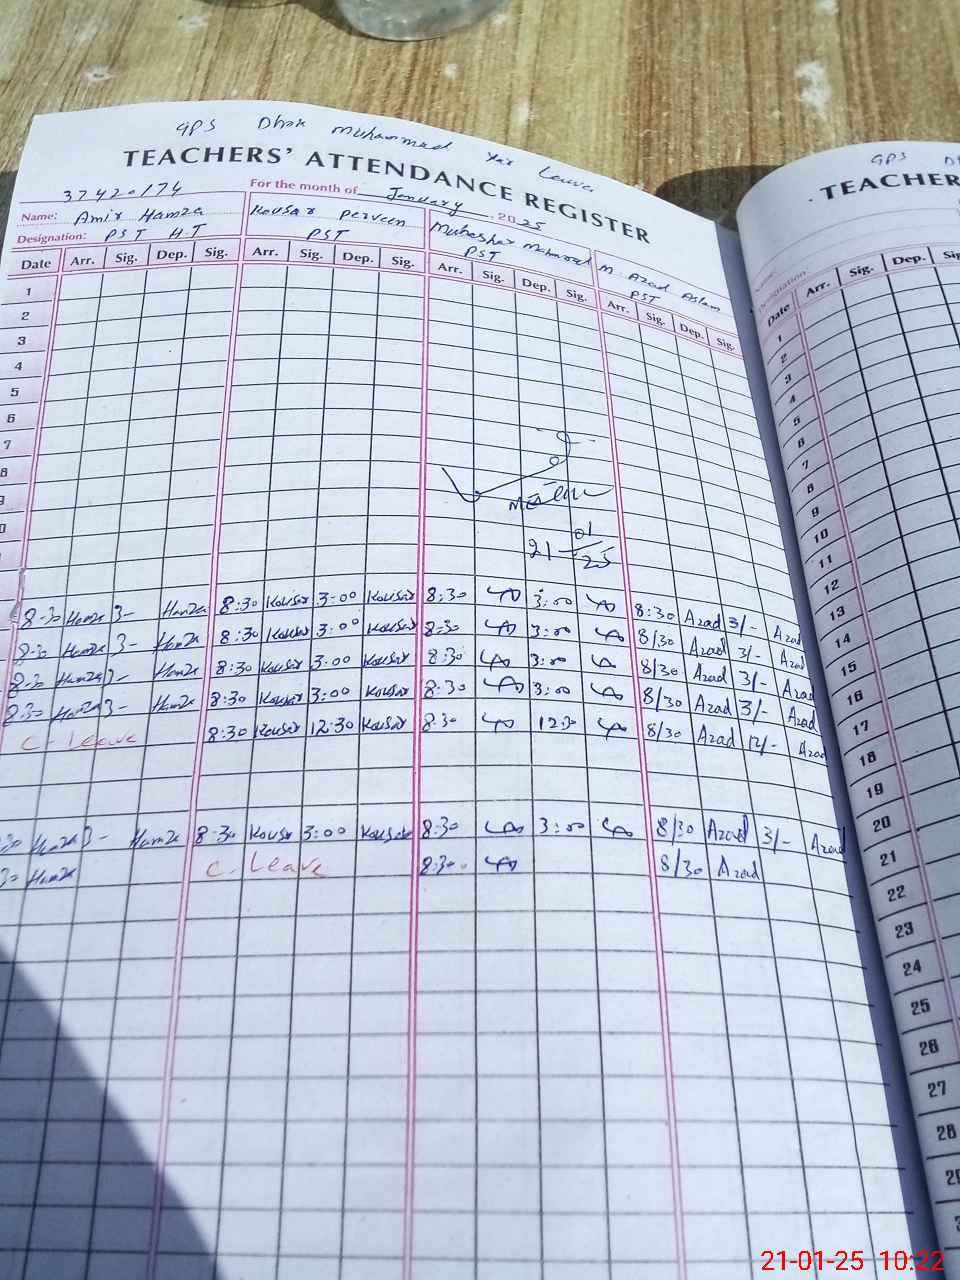 GPS Dhok Muhammad Yar Leave
TEACHERS' ATTENDANCE REGISTER
37420174 For the month of January, 2025
Name: Amir Hamza Kousar Perveen Mubashar Mehmood M. Azad Aslam
Designation: PST H.T PST PST PST
Date Arr. Sig. Dep. Sig. Arr. Sig. Dep. Sig. Arr. Sig. Dep. Sig. Arr. Sig. Dep. Sig.
1
2
3
4
5
6
7
8
9
0
21 01 25
8:30 Hamza 3- Hamza 8:30 Kousar 3:00 Kousar 8:30 3:00 8:30 Azad 3/- Azad
8:30 Hamza 3- Hamza 8:30 Kousar 3:00 Kousar 8:30 3:00 8/30 Azad 3/- Azad
8:30 Hamza 3- Hamza 8:30 Kousar 3:00 Kousar 8:30 3:00 8/30 Azad 3/- Azad
8:30 Hamza 3- Hamza 8:30 Kousar 3:00 Kousar 8:30 3:00 8/30 Azad 3/- Azad
C- leave 8:30 Kousar 12:30 Kousar 8:30 12:30 8/30 Azad 12/- Azad
30 Hamza 3- Hamza 8:30 Kousar 3:00 Kousar 8:30 3:00 8/30 Azad 3/- Azad
30 Hamza C. Leave 8:30 8/30 Azad
GPS
TEACHER
Designation
Date Arr. Sig. Dep.
1
2
3
4
5
6
7
8
9
10
11
12
13
14
15
16
17
18
19
20
21
22
23
24
25
26
27
28
21-01-25 10:22